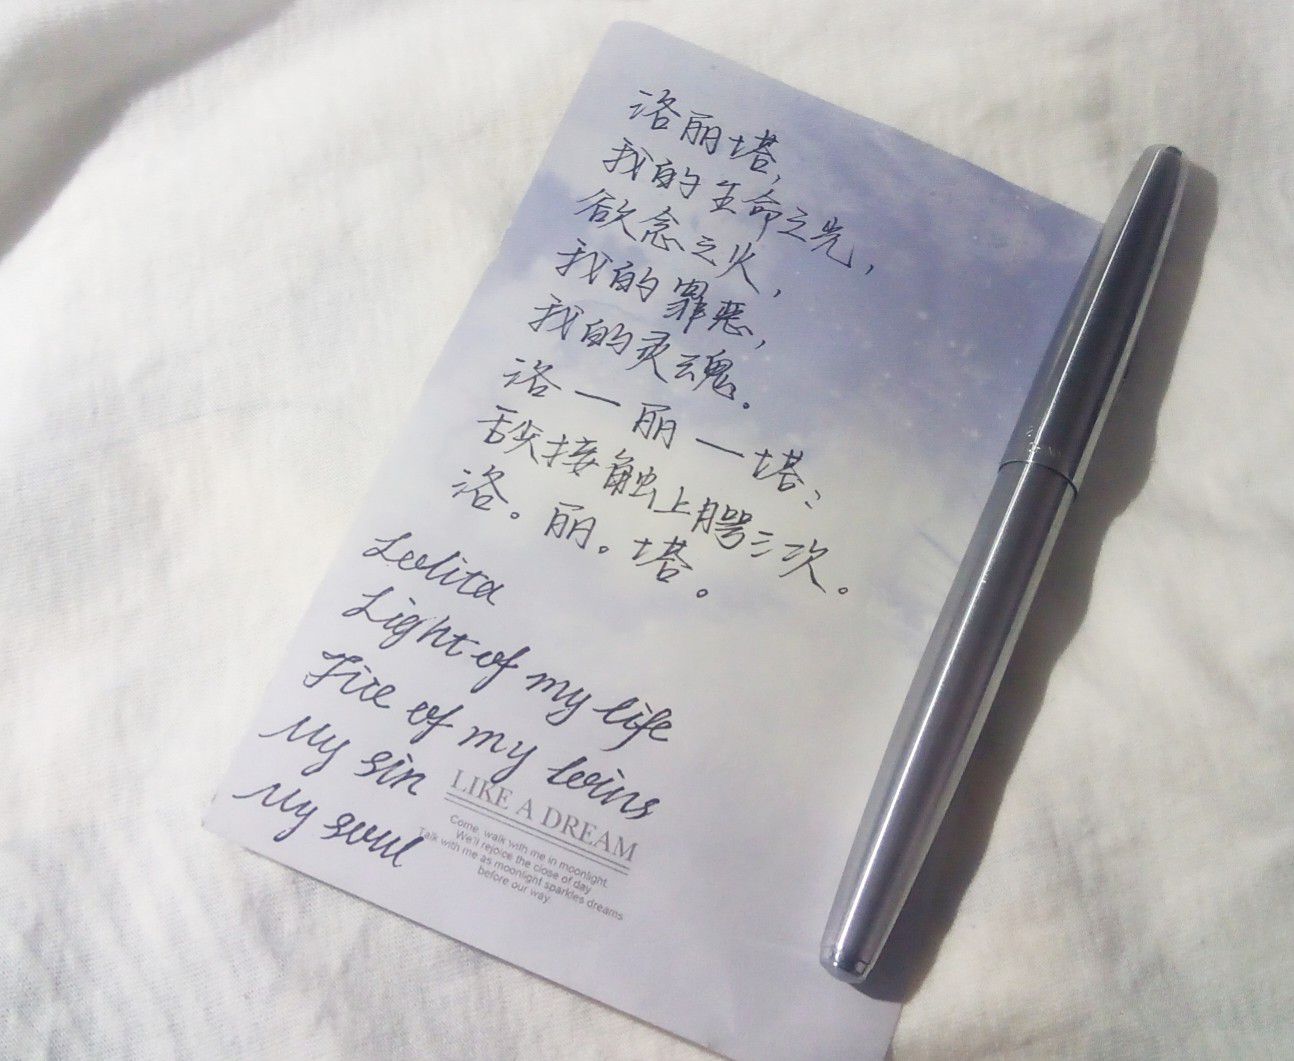 洛丽塔,
我的生命之光,
欲念之火,
我的罪恶,
我的灵魂。
洛一丽一塔:
舌尖接触上腭三次。
洛。丽。塔。
Lolita
Light of my life
Fire of my loins
My sin
My soul
LIKE A DREAM
Come, walk with me in moonlight.
We'll rejoice the close of day
Talk with me as moonlight sparkles dreams
before our way.